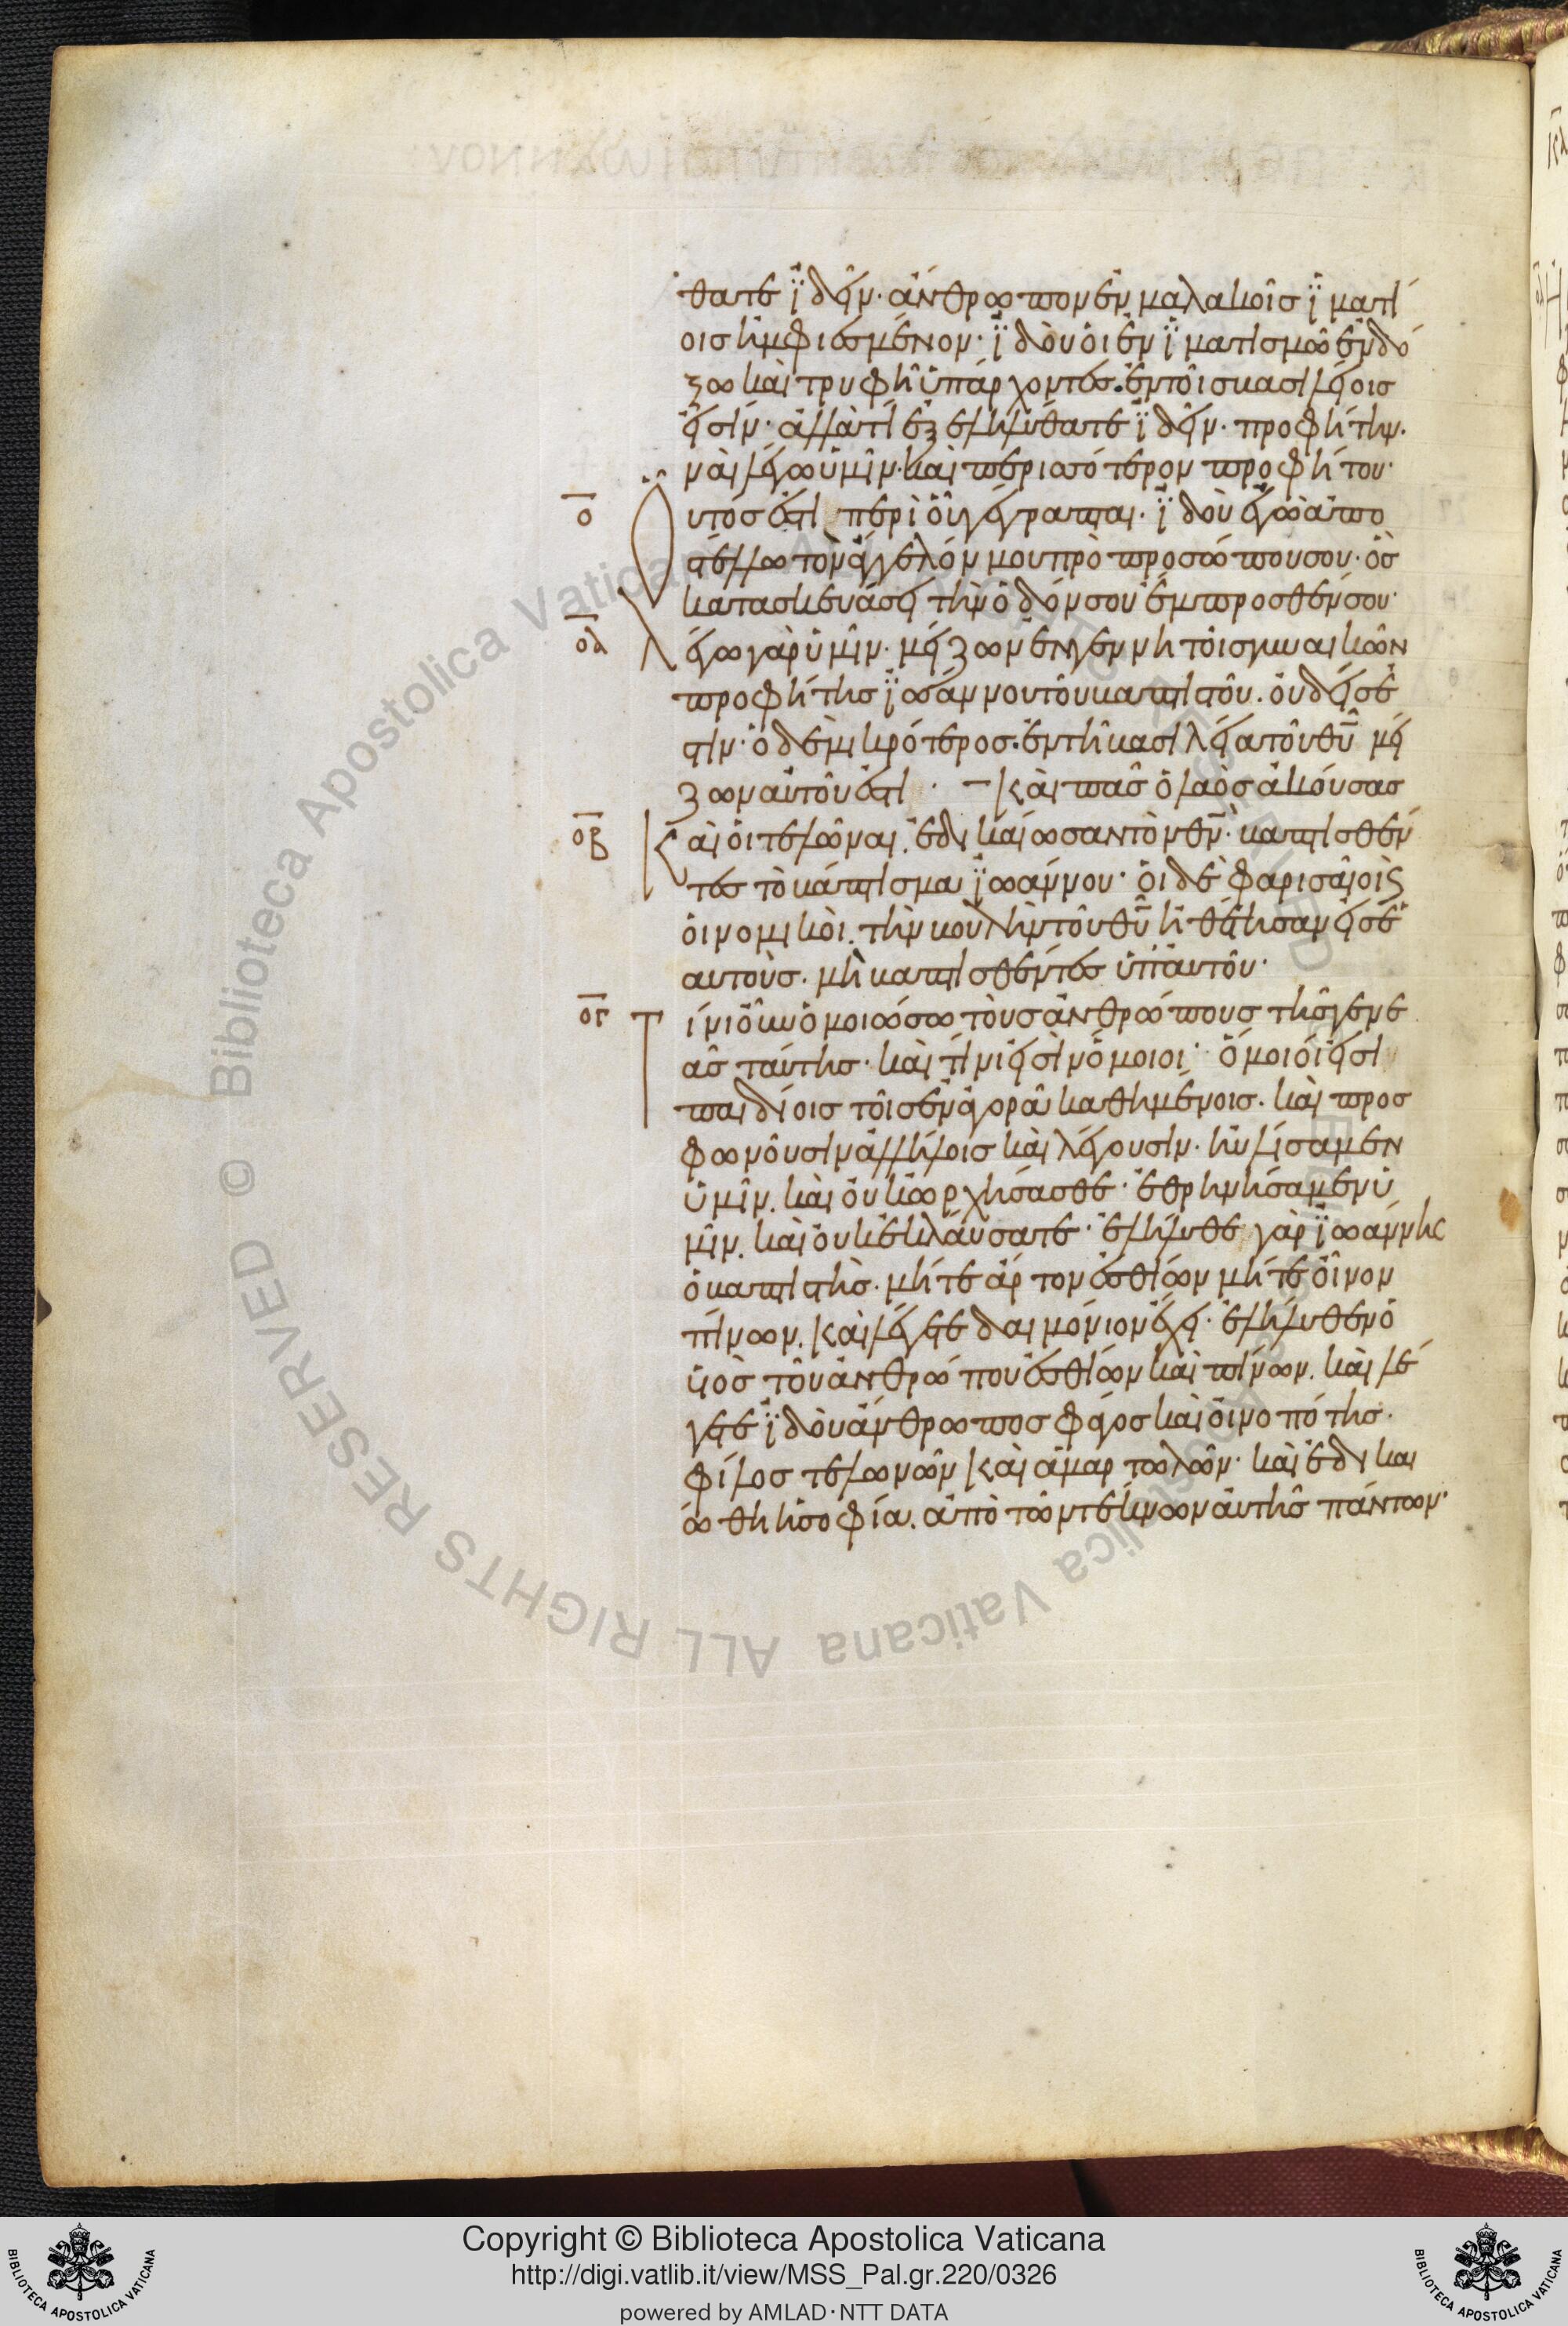 θατε ϊδεῖν· ἄνθρωπον ἐν μαλακοῖσ ϊματί
οισ ἠμφιεσμένον· ϊδοὺ οἱ ἐν ϊματισμῶ ἐνδό
ξω καὶ τρυφῆ ὑπάρχοντεσ. ἐν τοῖσ βασιλείοισ
εἰσίν· ἀλλὰ τί ἐξεληλύθατε ϊδεῖν· προφήτην.
ναὶ λέγω ὑμῖν· καὶ περισσότερον προφήτου·
ο Οὗ
υτόσ ἐστι περὶ οὗ γέγραπται· ϊδοὺ ἐγὼ ἀπο
στέλλω τὸν ἄγγελόν μου πρὸ προσώπου σου· ὃσ
κατασκευάσει τὴν ὁδόν σου ἔμπροσθέν σου·
οα Λ
έγω γὰρ ὑμῖν· μείζων ἐν γεννητοῖσ γυναικῶν
προφήτησ ϊωάννου τοῦ βαπτιστοῦ. οὐδείσ ἐ
στιν· ὁ δὲ μικρότεροσ. ἐν τῆ βασιλεία τοῦ θυ μεί
ζων αὐτοῦ ἐστι · – Καὶ πᾶσ ὁ λαὸσ ἀκούσασ
οβ Κ
αὶ οἱ τελῶναι. ἐδικαίωσαν τὸν θν. βαπτισθέν
τεσ τὸ βάπτισμα ϊωάννου· οἱ δὲ φαρισαῖοι ϗ
οἱ νομικοὶ. τὴν βουλὴν τοῦ θυ ἠθέτησαν εἰσ ἑ
αυτοὺσ. μὴ βαπτισθέντεσ ὑπ' αὐτοῦ·
ογ Τ
ίνι οὖν ὁμοιώσω τοὺσ ἀνθρώπουσ τῆσ γενε
ᾶσ ταύτησ· καὶ τίνι εἰσὶν ὅμοιοι· ὅμοιοί εἰσι
παιδίοισ τοῖσ ἐν ἀγορᾶ καθημένοισ. καὶ προσ
φωνοῦσιν ἀλλήλοισ καὶ λέγουσιν. ηὐλίσαμεν
ὑμῖν. καὶ οὐκ ὠρχήσασθε· ἐθρηνήσαμεν ὑ
μῖν. καὶ οὐκ ἐκλαύσατε· ἐλήλυθε γὰρ ϊωάννησ
ὁ βαπτιστὴσ. μήτε ἄρτον ἐσθίων μήτε οἶνον
πίνων. καὶ λέγετε δαιμόνιον ἔχει· ἐλήλυθεν ὁ
υἱὸσ τοῦ ἀνθρώπου ἐσθίων καὶ πίνων. καὶ λέ
γετε ϊδοὺ ἄνθρωποσ φάγοσ καὶ οἰνοπότησ.
φίλοσ τελωνῶν καὶ ἁμαρτωλῶν· καὶ ἐδικαι
ώθη ἡ σοφία. ἀπὸ τῶν τέκνων αὐτῆσ πάντων·
Copyright © Biblioteca Apostolica Vaticana
http://digi.vatlib.it/view/MSS_Pal.gr.220/0326
powered by AMLAD·NTT DATA